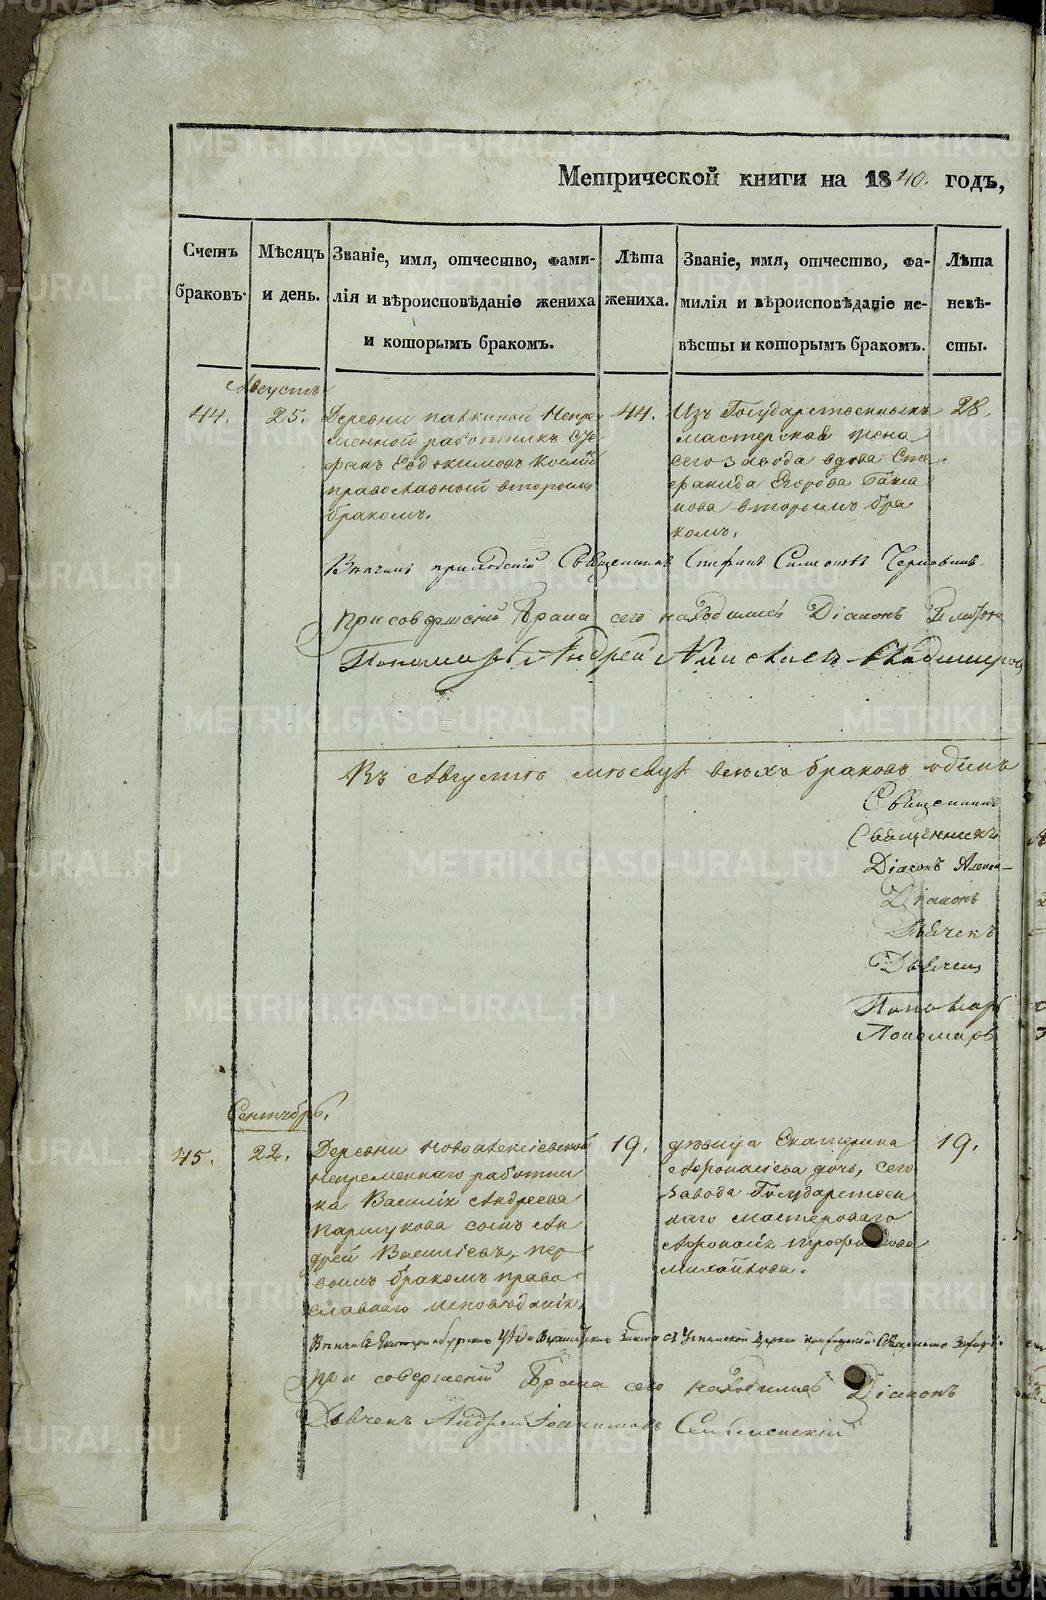 Метрической книги на 1840. годъ,
Счетъ браковъ.
Мѣсяцъ и день.
Званіе, имя, отчество, фами-
лія и вѣроисповѣданіе жениха
и которымъ бракомъ.
Лѣта жениха.
Званіе, имя, отчество, фа-
милія и вѣроисповѣданіе не-
вѣсты и которымъ бракомъ.
Лѣта невѣ-
сты.
Августъ
44.
25.
Деревни Непре-
менной работникъ Сте-
фанъ Евдокимовъ
православный вторымъ
бракомъ.
44.
Изъ Государственныхъ
мастерская жена
сего завода вдова Сте-
фанида Егорова
вторымъ бра
комъ.
28.
приходскій Священникъ Стефанъ
При совершеніи Брака сего находились Діаконъ
Пономарь Андрей
Въ Августѣ месяцѣ всѣхъ браковъ одинъ
Священникъ
Священникъ
Діаконъ
Діаконъ
Дьячекъ
Дьячекъ
Пономарь
Пономарь
Сентябрь.
45.
22.
Деревни Новоалексіевской
непременнаго работни
ка Василія Андреева
Паршукова сынъ Ан
дрей Васильевъ, пер
вымъ бракомъ право
славнаго исповѣданія
19.
девица Екатерина
Афонасіева дочь, сего
завода Государствен
наго мастероваго
Афонасія Трофимова
Михайлова.
19.
При совершеніи Брака сего находились Діаконъ
Дьячекъ Андрей Іоакимовъ
METRIKI.GASO-URAL.RU